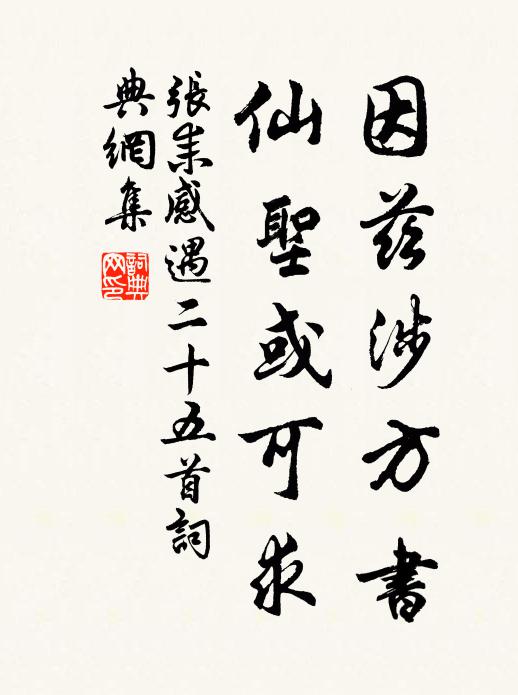 因茲涉方書
仙聖或可求
張耒感遇二十五首詞
典網集
詞典網印